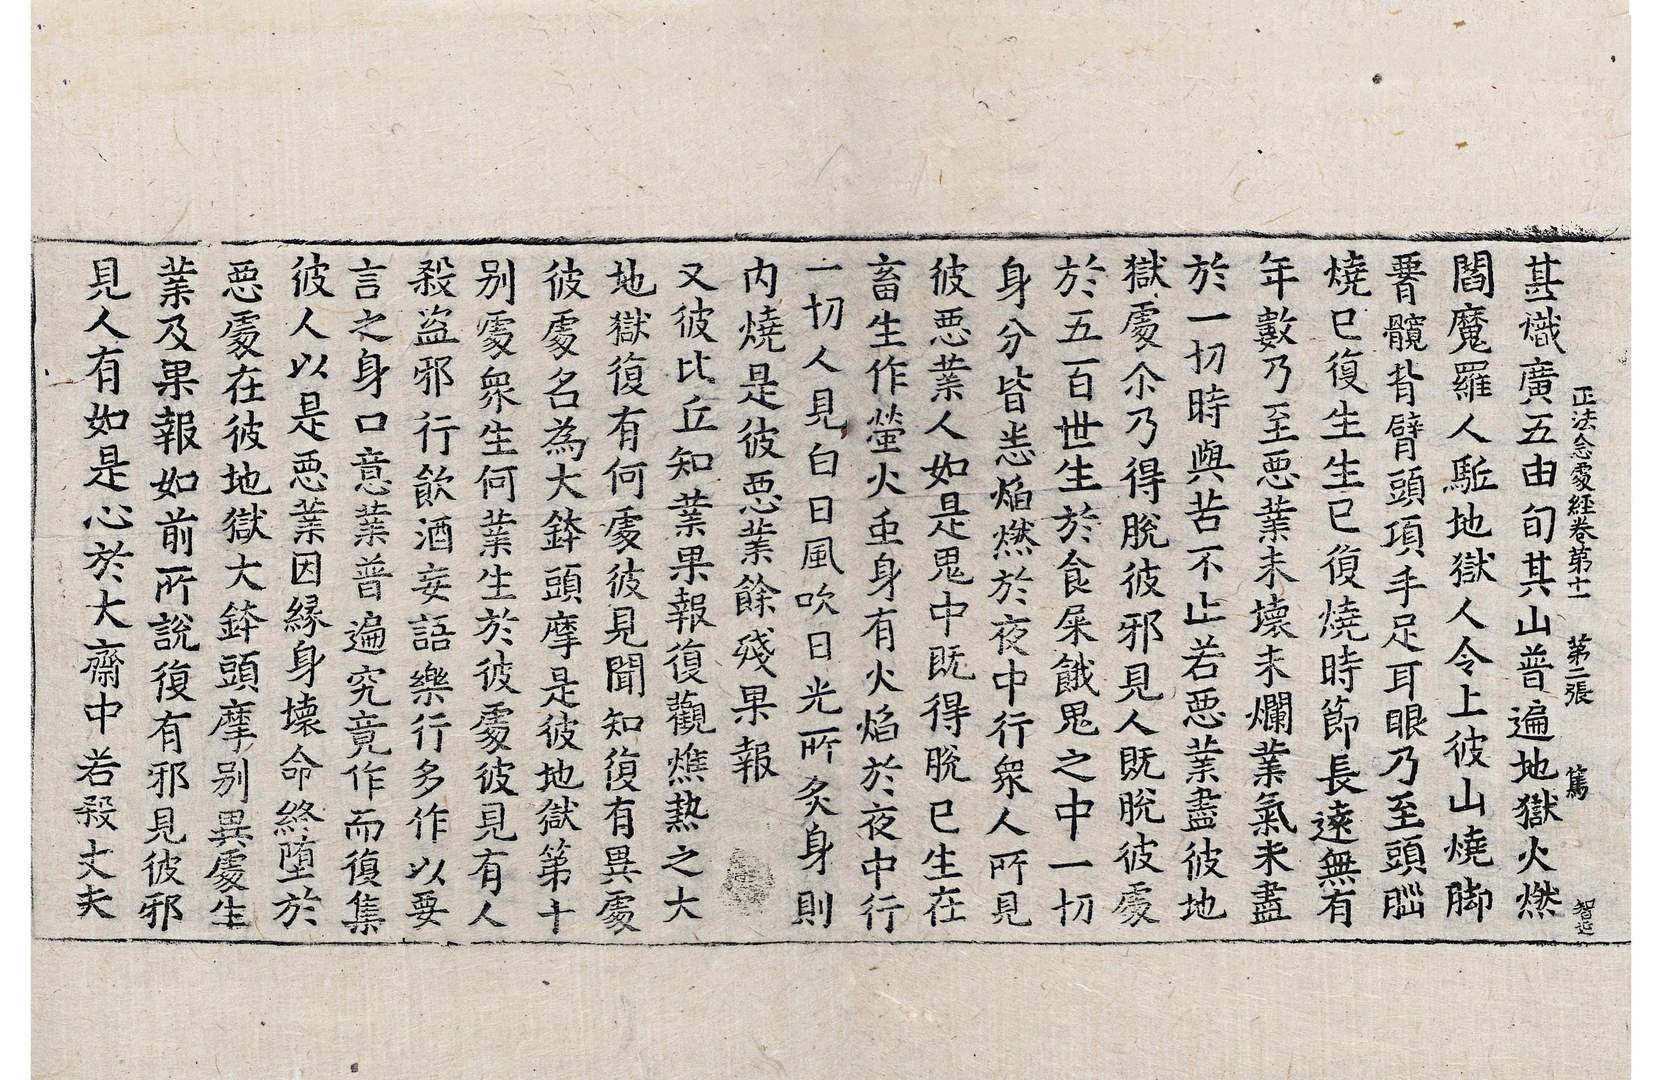 正法念處經卷第十一 第二張 篤 智延
甚熾廣五由旬其山普遍地獄火燃
閻魔羅人駈地獄人令上彼山燒脚
𦝫髖背臂頭項手足耳眼乃至頭𦛁
燒已復生生已復燒時節長遠無有
年數乃至惡業未壞未爛業氣未盡
於一切時與苦不止若惡業盡彼地
獄處尒乃得脫彼邪見人既脫彼處
於五百世生於食屎餓鬼之中一切
身分皆恙焰燃於夜中行衆人所見
彼惡業人如是鬼中既得脫已生在
畜生作螢火虫身有火焰於夜中行
一切人見白日風吹日光所炙身則
內燒是彼惡業餘殘果報
又彼比丘知業果報復觀燋熱之大
地獄復有何處彼見聞知復有異處
彼處名為大鉢頭摩是彼地獄第十
別處衆生何業生於彼處彼見有人
殺盜邪行飲酒妄語樂行多作以要
言之身口意業普遍究竟作而復集
彼人以是惡業因緣身壞命終墮於
惡處在彼地獄大鉢頭摩別異處生
業及果報如前所說復有邪見彼邪
見人有如是心於大齋中若殺丈夫